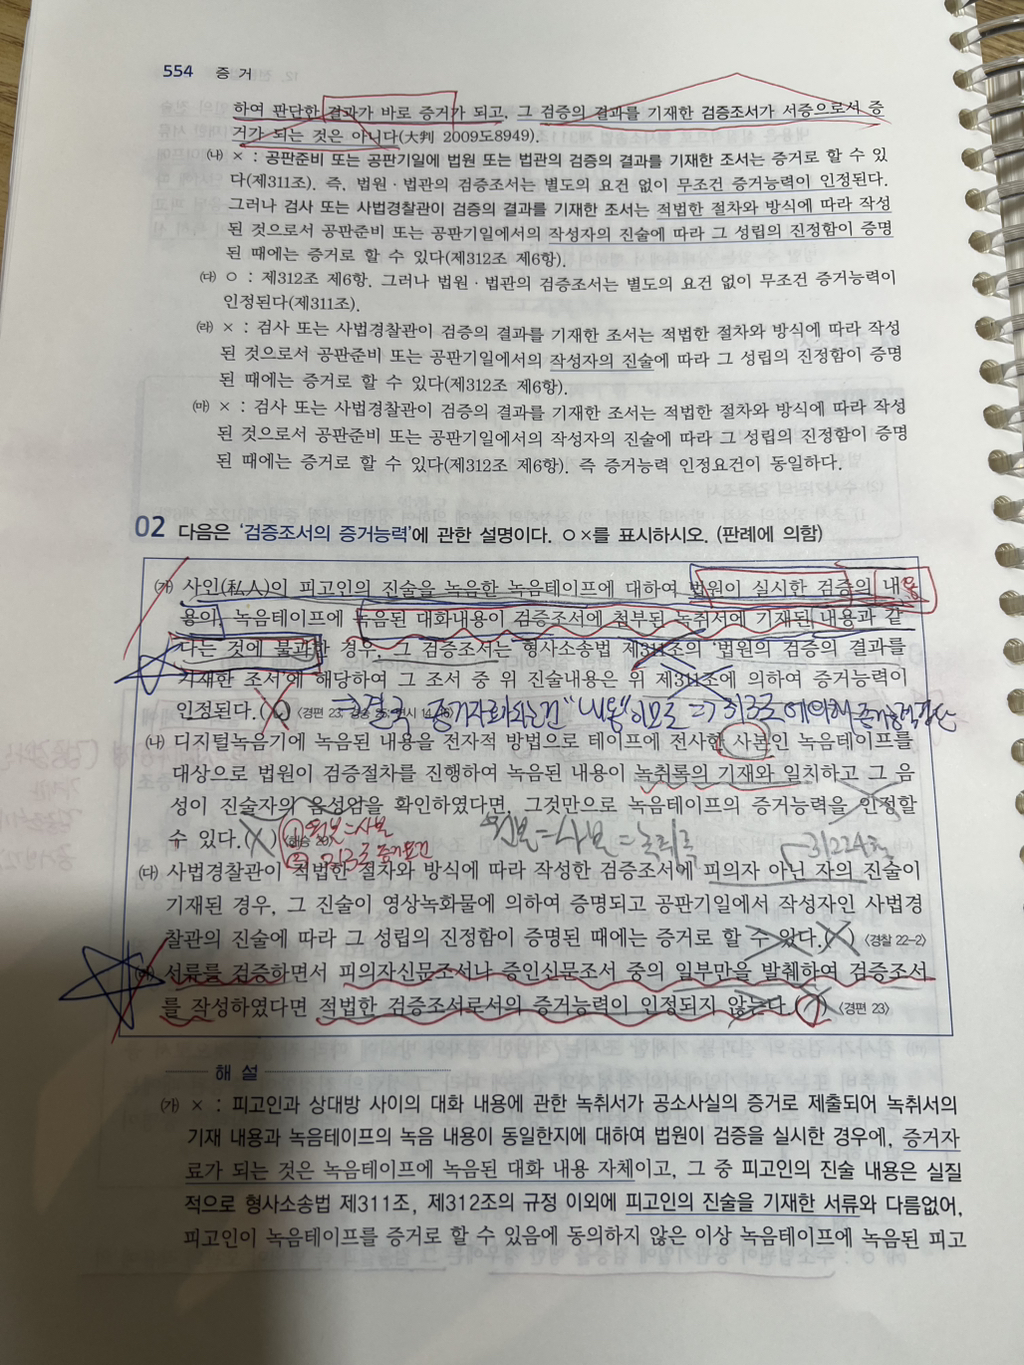 554 증 거
하여 판단한 결과가 바로 증거가 되고, 그 검증의 결과를 기재한 검증조서가 서증으로서 증
거가 되는 것은 아니다(大判 2009도8949).
(나) × : 공판준비 또는 공판기일에 법원 또는 법관의 검증의 결과를 기재한 조서는 증거로 할 수 있
다(제311조). 즉, 법원·법관의 검증조서는 별도의 요건 없이 무조건 증거능력이 인정된다.
그러나 검사 또는 사법경찰관이 검증의 결과를 기재한 조서는 적법한 절차와 방식에 따라 작성
된 것으로서 공판준비 또는 공판기일에서의 작성자의 진술에 따라 그 성립의 진정함이 증명
된 때에는 증거로 할 수 있다(제312조 제6항).
(다) ○ : 제312조 제6항. 그러나 법원·법관의 검증조서는 별도의 요건 없이 무조건 증거능력이
인정된다(제311조).
(라) × : 검사 또는 사법경찰관이 검증의 결과를 기재한 조서는 적법한 절차와 방식에 따라 작성
된 것으로서 공판준비 또는 공판기일에서의 작성자의 진술에 따라 그 성립의 진정함이 증명
된 때에는 증거로 할 수 있다(제312조 제6항).
(마) × : 검사 또는 사법경찰관이 검증의 결과를 기재한 조서는 적법한 절차와 방식에 따라 작성
된 것으로서 공판준비 또는 공판기일에서의 작성자의 진술에 따라 그 성립의 진정함이 증명
된 때에는 증거로 할 수 있다(제312조 제6항). 즉 증거능력 인정요건이 동일하다.
02 다음은 '검증조서의 증거능력'에 관한 설명이다. ○×를 표시하시오. (판례에 의함)
(가) 사인(私人)이 피고인의 진술을 녹음한 녹음테이프에 대하여 법원이 실시한 검증의 내
용이 녹음테이프에 녹음된 대화내용이 검증조서에 첨부된 녹취서에 기재된 내용과 같
다는 것에 불과한 경우, 그 검증조서는 형사소송법 제311조의 '법원의 검증의 결과를
기재한 조서'에 해당하여 그 조서 중 위 진술내용은 위 제311조에 의하여 증거능력이
인정된다. ( ) <경편 23,
⇒ 결국 증거자료되는건 "내용"이므로 ⇒ 313조에 의해 증거능력판단
(나) 디지털녹음기에 녹음된 내용을 전자적 방법으로 테이프에 전사한 사본인 녹음테이프를
대상으로 법원이 검증절차를 진행하여 녹음된 내용이 녹취록의 기재와 일치하고 그 음
성이 진술자의 음성임을 확인하였다면, 그것만으로 녹음테이프의 증거능력을 인정할
수 있다. ( )
① 원본=사본 원본=사본=녹취록
② 313조 증거요건
(다) 사법경찰관이 적법한 절차와 방식에 따라 작성한 검증조서에 피의자 아닌 자의 진술이
기재된 경우, 그 진술이 영상녹화물에 의하여 증명되고 공판기일에서 작성자인 사법경
찰관의 진술에 따라 그 성립의 진정함이 증명된 때에는 증거로 할 수 있다. ( ) <경찰 22-2>
(라) 서류를 검증하면서 피의자신문조서나 증인신문조서 중의 일부만을 발췌하여 검증조서
를 작성하였다면 적법한 검증조서로서의 증거능력이 인정되지 않는다. ( ) <경편 23>
해 설
(가) × : 피고인과 상대방 사이의 대화 내용에 관한 녹취서가 공소사실의 증거로 제출되어 녹취서의
기재 내용과 녹음테이프의 녹음 내용이 동일한지에 대하여 법원이 검증을 실시한 경우에, 증거자
료가 되는 것은 녹음테이프에 녹음된 대화 내용 자체이고, 그 중 피고인의 진술 내용은 실질
적으로 형사소송법 제311조, 제312조의 규정 이외에 피고인의 진술을 기재한 서류와 다름없어,
피고인이 녹음테이프를 증거로 할 수 있음에 동의하지 않은 이상 녹음테이프에 녹음된 피고